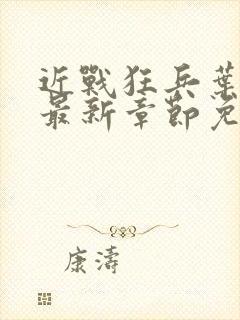 近戰狂兵葉
最新章節免
康濤